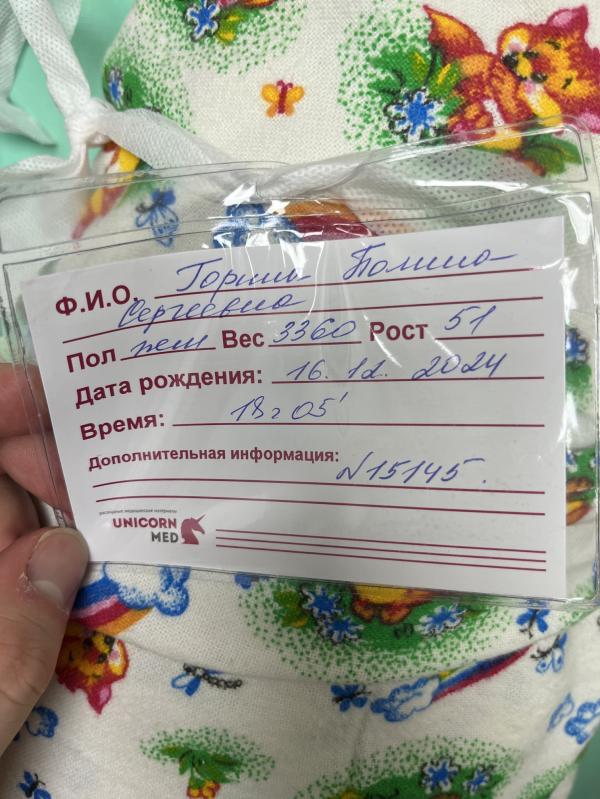 Ф.И.О. Полина
Сергеевна
Пол жен Вес 3360 Рост 51
Дата рождения: 16.12.2024
Время: 18 г 05'
Дополнительная информация:
N15145.
UNICORN
MED